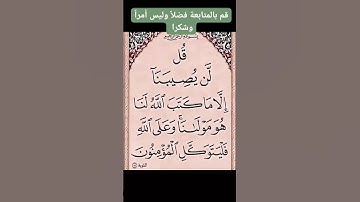 قم بالمتابعة فضلاً وليس أمراً
وشكرا
قُل
لَّن يُصِيبَنَآ
إِلَّا مَا كَتَبَ ٱللَّهُ لَنَا
هُوَ مَوْلَىٰنَا ۚ وَعَلَى ٱللَّهِ
فَلْيَتَوَكَّلِ ٱلْمُؤْمِنُونَ
التوبة